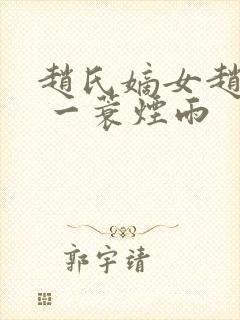 趙氏嫡女趙
一蓑煙雨
郭宇靖